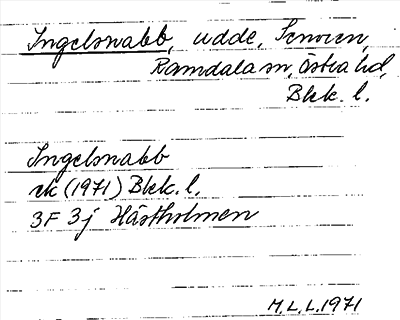 Ingelsnabb, udde, Senoren,
Ramdala sn, Östra hd,
Blek. l.
Ingelsnabb
ek (1971) Blek. l.
3F 3j Hästholmen
M.L.L. 1971